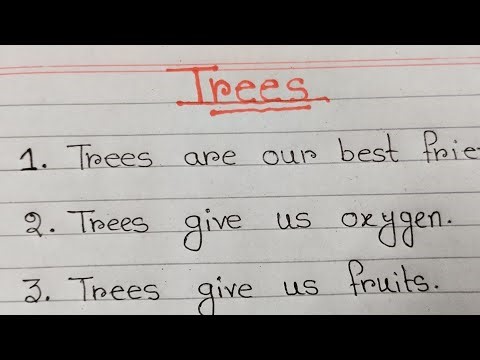 Trees
1. Trees are our best frie
2. Trees give us oxygen.
3. Trees give us fruits.